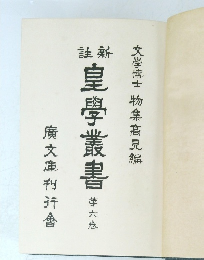 文學博士 物集高見編
新註
皇學叢書
第六卷
廣文庫刊行會